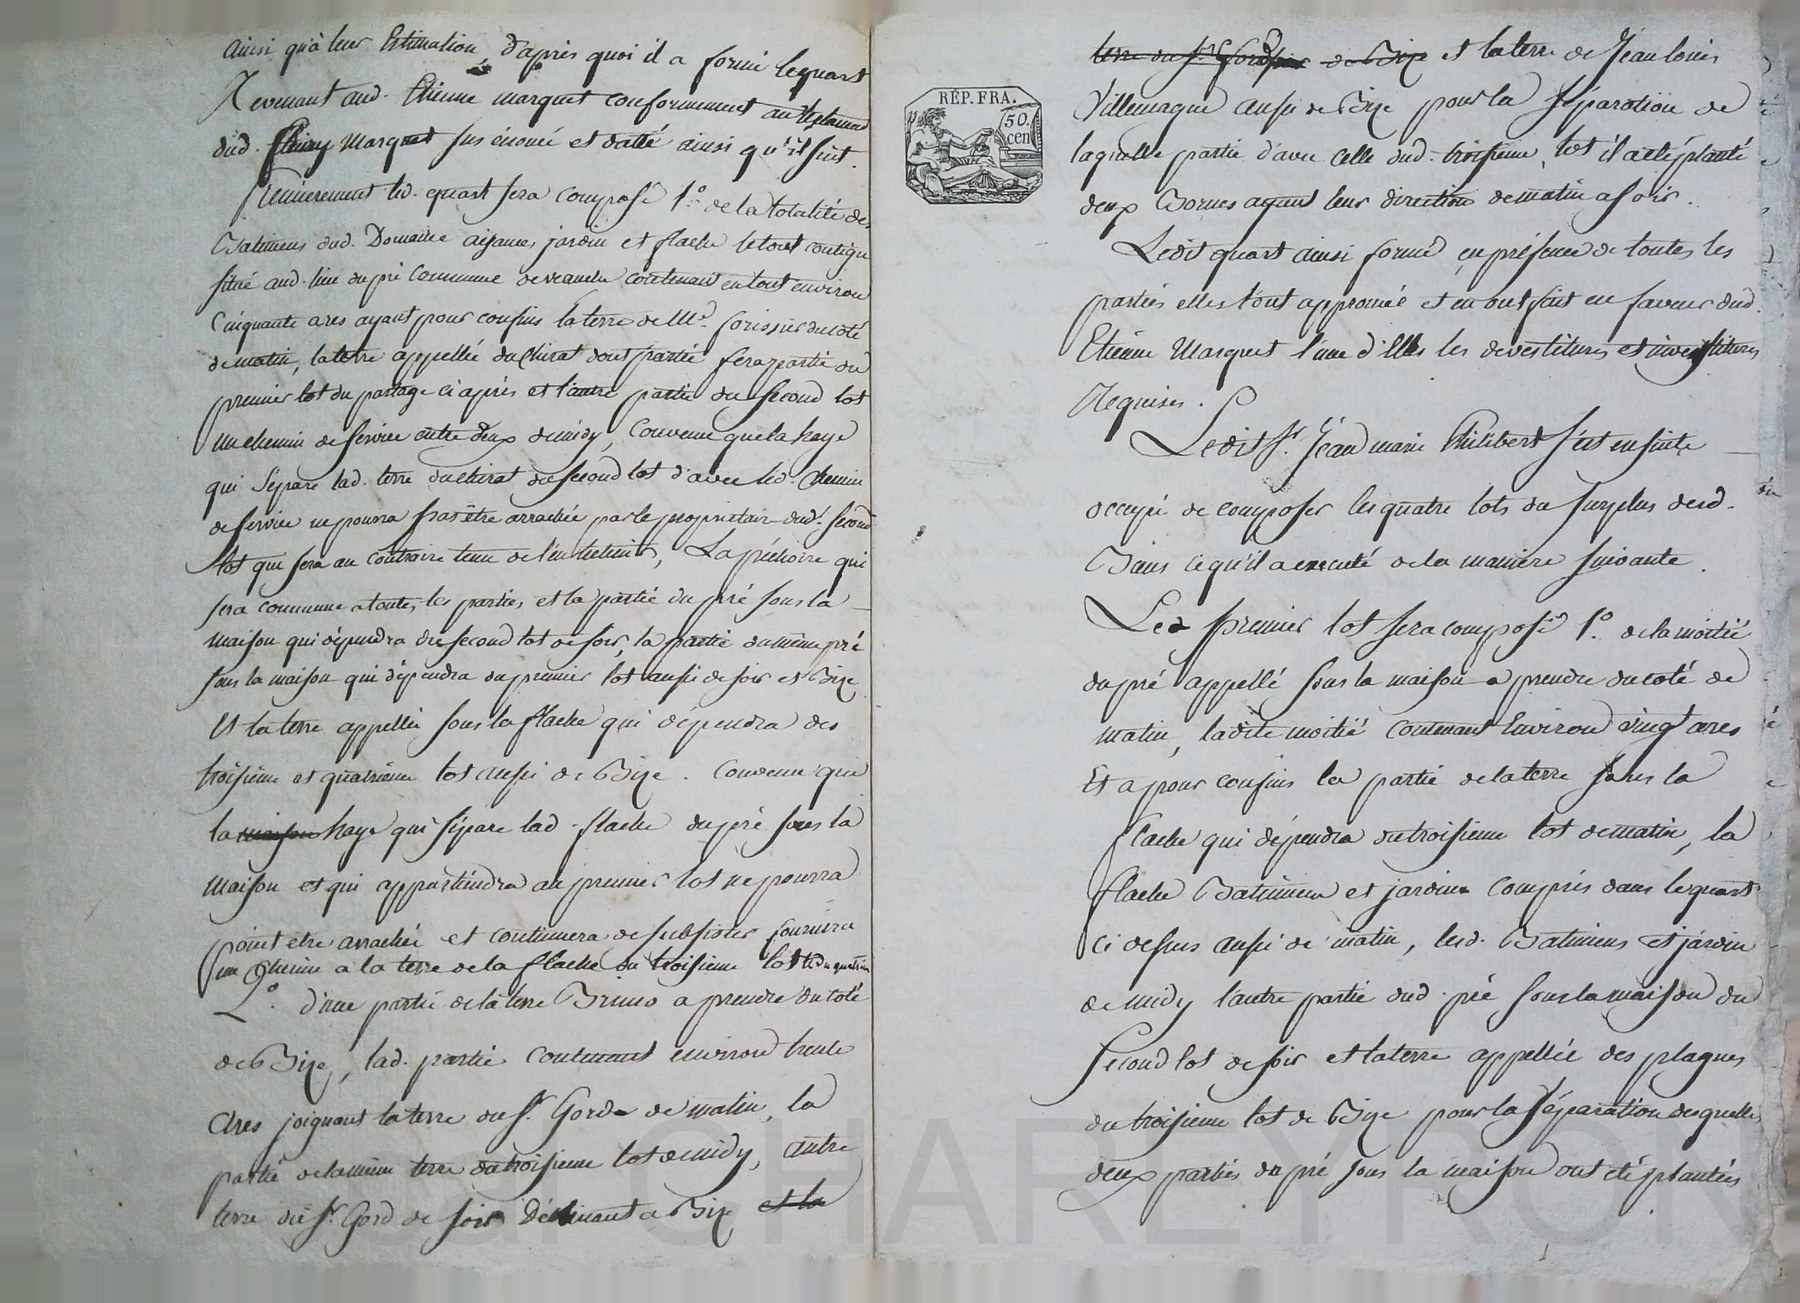 ainsi qu'à leur Estimation, d'après quoi il a formé le quart
Revenant aud. Etienne marquet conformement au testament
dud. fleury Marquet sus énoncé et datté ainsi qu'il suit.
Premierement led. quart sera composé 1.º de la totalité des
Batimens dud. Domaine aisances jardin et flache le tout contigu
situé aud. lieu du pré Commune de contenant en tout environ
Cinquante ares ayant pour confins la terre de Mr. forissier du coté
de matin, la terre appellée du Chirat dont partie fera partie du
premier lot du partage ci après et l'autre partie du second lot
un chemin de service entre deux de midy, Convenu que la haye
qui sépare lad. terre du chirat du second lot d'avec led. chemin
de service ne pourra pas être arrachée par le propriétaire dud. second
lot qui sera au contraire tenu de l'entretenir, La péchoire qui
sera commune a toutes les parties et la partie du pré sous la
maison qui dépendra du second lot de soir, la partie du même pré
sous la maison qui dépendra du premier lot aussi de soir et Bize
Et la terre appellée sous la flache qui dépendra des
troisieme et quatrieme lot aussi de Bize. Convenu que
la maison haye qui sépare lad. flache du pré sous la
maison et qui appartiendra au premier lot ne pourra
point etre arrachée et continuera de subsister fournira
un Chemin a la terre de la flache du troisieme lot et du quatrieme
2.º d'une partie de la terre a prendre du coté
de Bize, lad. partie contenant environ trente
Ares joignant la terre du Sr. Gord de matin, la
partie de la même terre du troisieme lot de midy, autre
terre du Sr. Gord de soir Déclinant a Bize et la
terre du Sr. de Bize et la terre de Jean louis
REP. FRA.
50. cen
Villemagne aussi de Bize pour la séparation de
laquelle partie d'avec celle dud. troisieme lot il a été planté
deux Bornes ayant leur direction de matin a soir.
Ledit quart ainsi formé en présence de toutes les
parties elles l'ont approuvé et en ont fait en faveur dud.
Etienne Marquet l'une d'Elles les devestitures et investitures
Requises.
Ledit Sr. Jean marie Philibert s'est ensuite
occupé de composer les quatre lots du surplus desd.
Biens ce qu'il a executé de la maniere suivante.
Le premier lot sera composé 1.º de la moitié
du pré appellé sous la maison a prendre du coté de
matin, ladite moitié contenant Environ vingt ares
Et a pour confins la partie de la terre sous la
flache qui dépendra du troisieme lot de matin, la
flache Batimens et jardin compris dans le quart
ci dessus aussi de matin, lesd. Batimens et jardin
de midy l'autre partie dud. pré sous la maison du
second lot de soir et la terre appellée des plagnes
du troisieme lot de Bize pour la séparation desquelles
deux parties du pré sous la maison ont été plantées
CHAREYRON